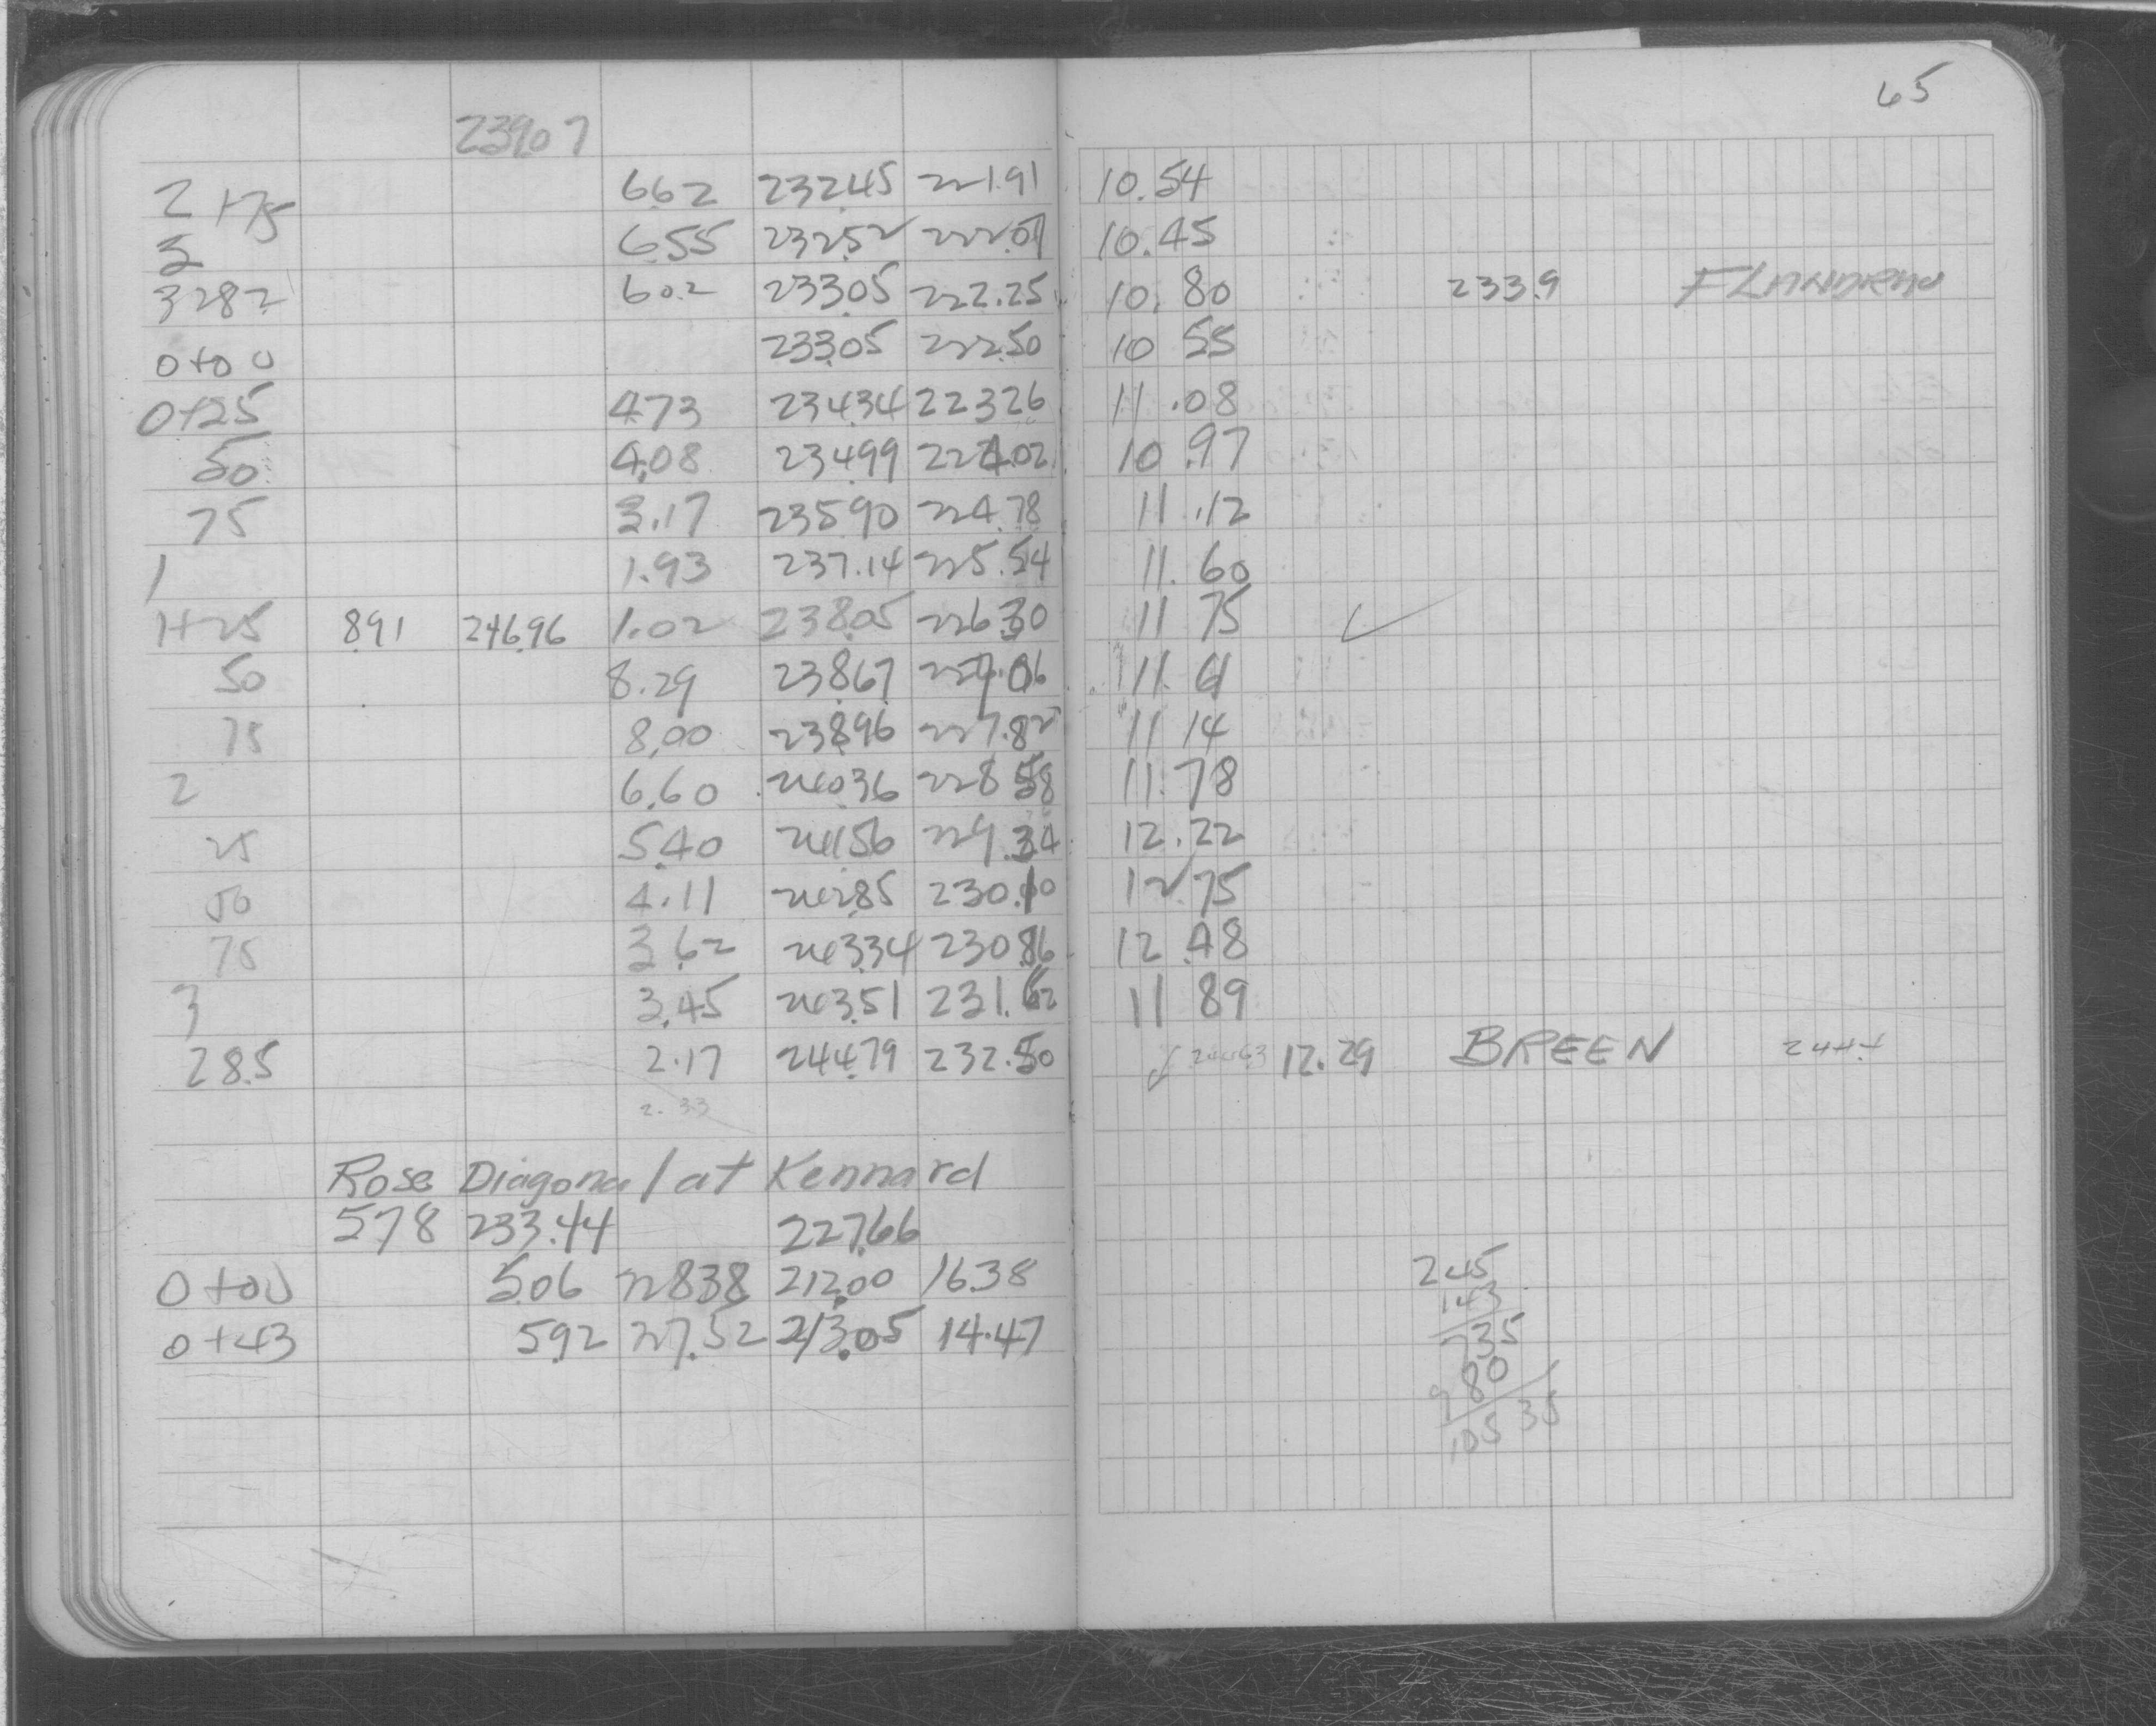 65
239.07
2+75 6.62 232.45 221.91 10.54
3 6.55 232.52 222.07 10.45
3 28.2 6.02 233.05 222.25 10.80 233.9 FLANDRAU
0+00 233.05 222.50 10 55
0+25 4.73 234.34 223 26 11.08
50 4.08 234.99 224.02 10.97
75 3.17 235.90 224.78 11.12
1 1.93 237.14 225.54 11.60
1+25 8.91 246.96 1.02 238.05 226.30 11 75 ✓
50 8.29 238.67 227.06 11.61
75 8.00 238.96 227.82 11 14
2 6.60 240.36 228 58 11.78
25 5.40 241.56 229.34 12.22
50 4.11 242.85 230.10 12.75
75 3.62 243.34 230.86 12.48
3 3.45 243.51 231.62 11 89
28.5 2.17 244.79 232.50 ✓ 244.63 12.29 BREEN
2.33
Rose Diagonal at Kennard
578 233.44 227.66
0+00 5.06 228.38 212.00 16.38
0+43 5.92 227.52 213.05 14.47
245
143
735
980
105 35